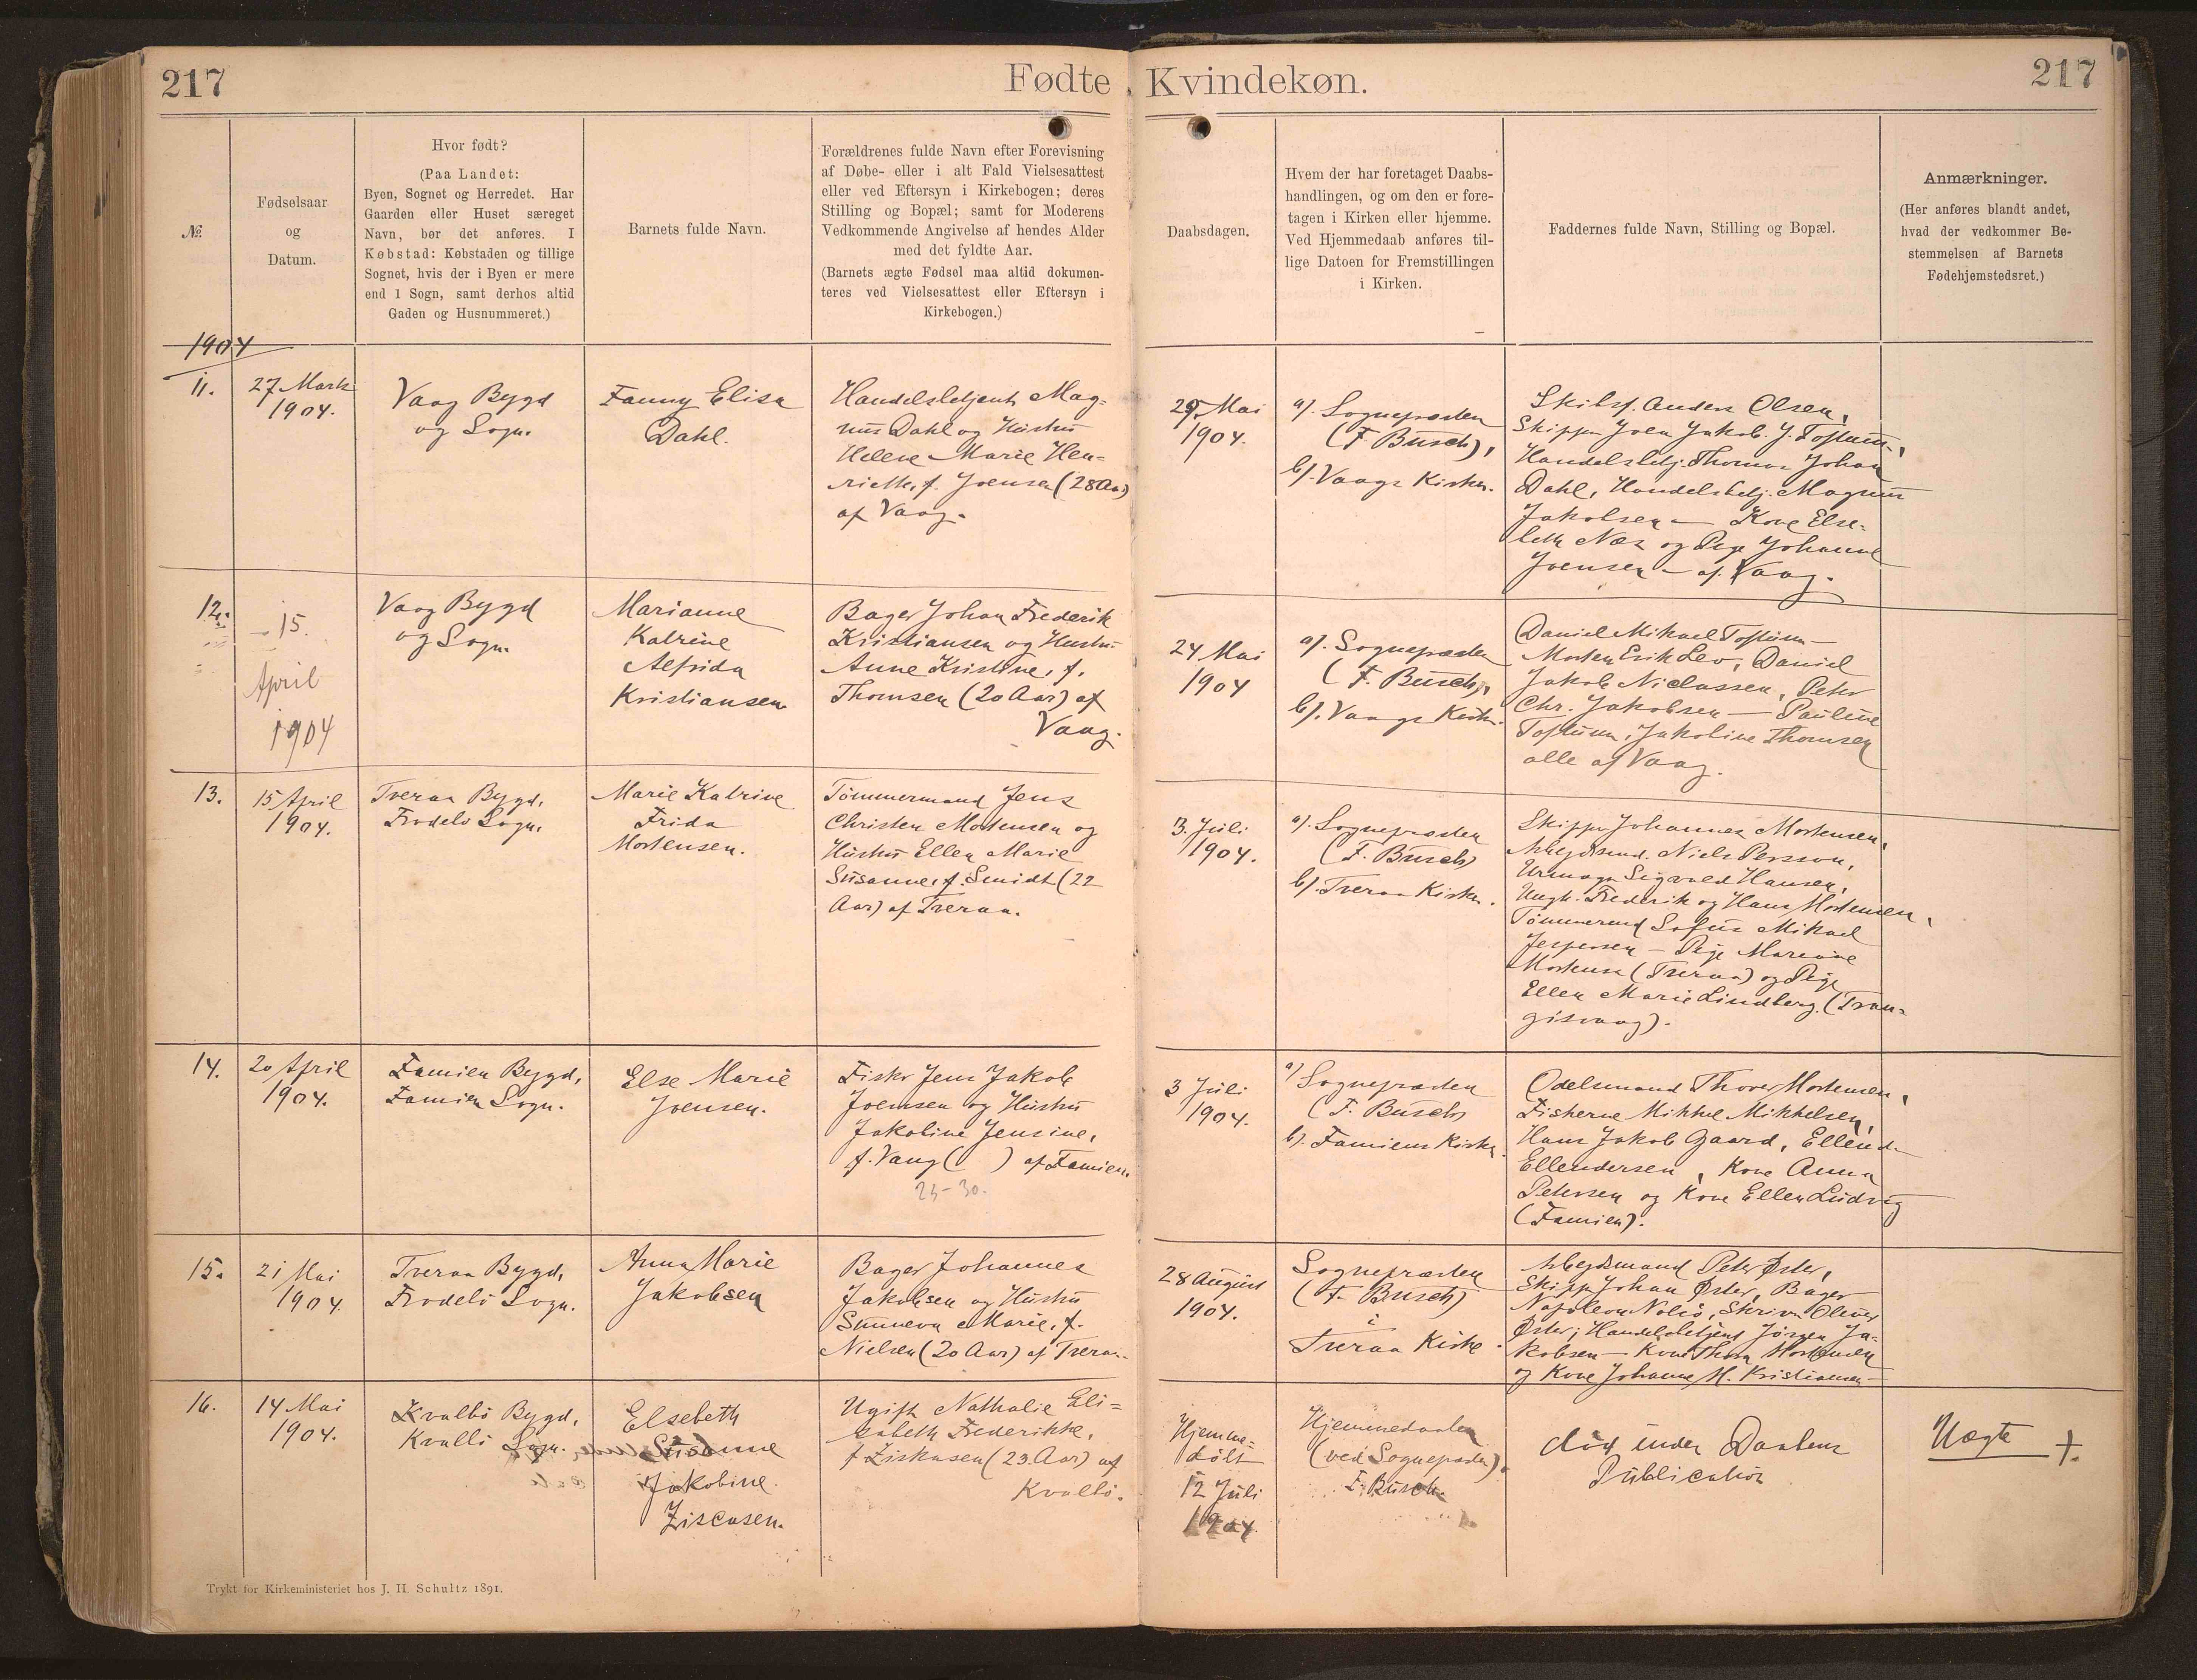 217
Fødte Kvindekøn.
217
№
Fødselsaar
og
Datum.
Hvor født?
(Paa Landet:
Byen, Sognet og Herredet. Har
Gaarden eller Huset særeget
Navn, bør det anføres. I
Købstad: Købstaden og tillige
Sognet, hvis der i Byen er mere
end 1 Sogn, samt derhos altid
Gaden og Husnummeret.)
Barnets fulde Navn.
Forældrenes fulde Navn efter Forevisning
af Døbe- eller i alt Fald Vielsesattest
eller ved Eftersyn i Kirkebogen; deres
Stilling og Bopæl; samt for Moderens
Vedkommende Angivelse af hendes Alder
med det fyldte Aar.
(Barnets ægte Fødsel maa altid dokumen-
teres ved Vielsesattest eller Eftersyn i
Kirkebogen.)
Daabsdagen.
Hvem der har foretaget Daabs-
handlingen, og om den er fore-
tagen i Kirken eller hjemme.
Ved Hjemmedaab anføres til-
lige Datoen for Fremstillingen
i Kirken.
Faddernes fulde Navn, Stilling og Bopæl.
Anmærkninger.
(Her anføres blandt andet,
hvad der vedkommer Be-
stemmelsen af Barnets
Fødehjemstedsret.)
1904
11.
27 Marts
1904.
Vaag Bygd
og Sogn.
Fanny Elisa
Dahl.
Handelsbetjent Mag-
nus Dahl og Hustru
Helene Marie Hen-
riette, f. Joensen (28 Aar)
af Vaag.
29 Mai
1904.
a). Sognepræsten
(F. Busch),
b). Vaags Kirke.
Skibsf. Anders Olsen,
Skipper Joen Jakob J. Toftum,
Handelsbetj. Thomas Johan
Dahl, Handelsbetj. Magnus
Jakobsen — Kone Else-
beth Næs og Pige Johanne
Joensen — af Vaag.
12.
15.
April
1904
Vaag Bygd
og Sogn.
Marianne
Katrine
Alfrida
Kristiansen
Bager Johan Frederik
Kristiansen og Hustru
Anne Kristine, f.
Thomsen (20 Aar) af
Vaag.
24 Mai
1904
a). Sognepræsten
(F. Busch),
b). Vaags Kirke.
Daniel Mikael Toftum —
Morten Erik Lev, Daniel
Jakob Niclassen, Peter
Chr. Jakobsen — Pauline
Toftum, Jakobine Thomsen
alle af Vaag.
13.
15 April
1904.
Tveraa Bygd,
Frodebö Sogn.
Marie Katrine
Frida
Mortensen.
Tömmermand Jens
Christen Mortensen og
Hustru Ellen Marie
Susanne, f. Smidt (22
Aar) af Tveraa.
3. Juli
1904.
a). Sognepræsten
(F. Busch)
b). Tveraa Kirke.
Skipper Johannes Mortensen,
Arbejdsmd. Niels Persson,
Urmager Sigvald Hansen,
Ungk. Frederik og Hans Mortensen,
Tömmermd Sofus Mikael
Jespersen — Pige Marianne
Mortensen (Tveraa) og Pige
Ellen Marie Lindberg (Tran-
gisvaag).
14.
20 April
1904.
Famien Bygd,
Famien Sogn.
Else Marie
Joensen.
Fisker Jens Jakob
Joensen og Hustru
Jakobine Jensine,
f. Vang ( ) af Famien.
25-30.
3 Juli
1904.
a) Sognepræsten
(F. Busch)
b). Famiens Kirke.
Odelsmand Thover Mortensen,
Fiskerne Mikkel Mikkelsen,
Hans Jakob Gaard, Ellend
Ellendersen, Kone Anna
Petersen og Kone Ellen Ludvig
(Famien).
15.
21 Mai
1904.
Tveraa Bygd,
Frodebö Sogn.
Anna Marie
Jakobsen
Bager Johannes
Jakobsen og Hustru
Sunneva Marie, f.
Nielsen (20 Aar) af Tveraa.
28 August
1904.
Sognepræsten
(F. Busch)
i
Tveraa Kirke.
Arbejdsmand Peter Øster,
Skipper Johan Øster, Bager
Napoleon Nolsö, Skriver Oliver
Øster, Handelsbetjent Jörgen Ja-
kobsen — Kone Thora Mortensen
og Kone Johanne M. Kristiansen —
16.
14 Mai
1904.
Kvalbö Bygd,
Kvalbö Sogn.
Elsebeth
Susanne
Jakobine
Ziscasen.
Ugift Nathalie Eli-
sabeth Frederikke,
f Ziskasen (23 Aar) af
Kvalbö.
Hjemme-
döbt
12 Juli
1904.
Hjemmedaaben
(ved Sognepræsten)
F. Busch.
död inden Daabens
Publication
Uægte +.
Trykt for Kirkeministeriet hos J. H. Schultz 1891.